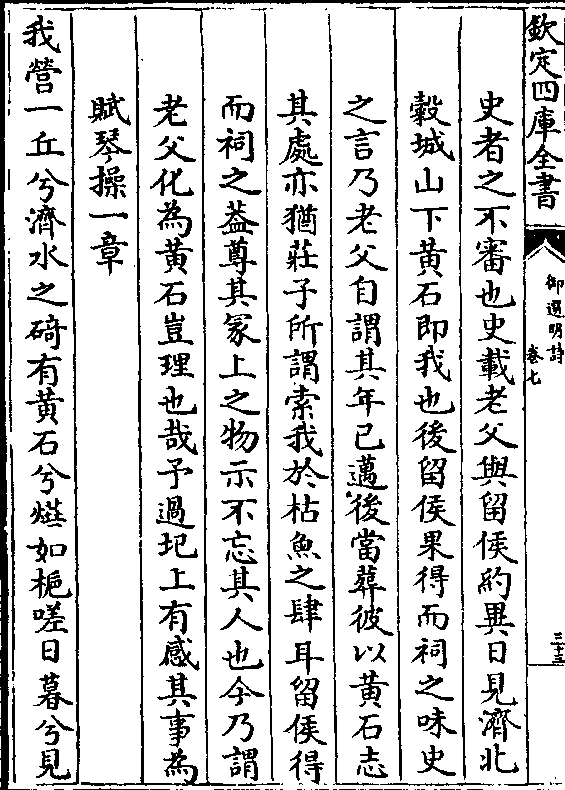 欽定四庫全書
御選明詩
卷七
三十三
史者之不審也史載老父與留侯約異日見濟北
糓城山下黄石即我也後留侯果得而祠之味史
之言乃老父自謂其年已邁後當葬彼以黄石志
其處亦猶莊子所謂索我於枯魚之肆耳留侯得
而祠之葢尊其冢上之物示不忘其人也今乃謂
老父化為黄石豈理也哉予過圯上有感其事為
賦琴操一章
我營一丘兮濟水之碕有黄石兮爓如梔嗟日暮兮見